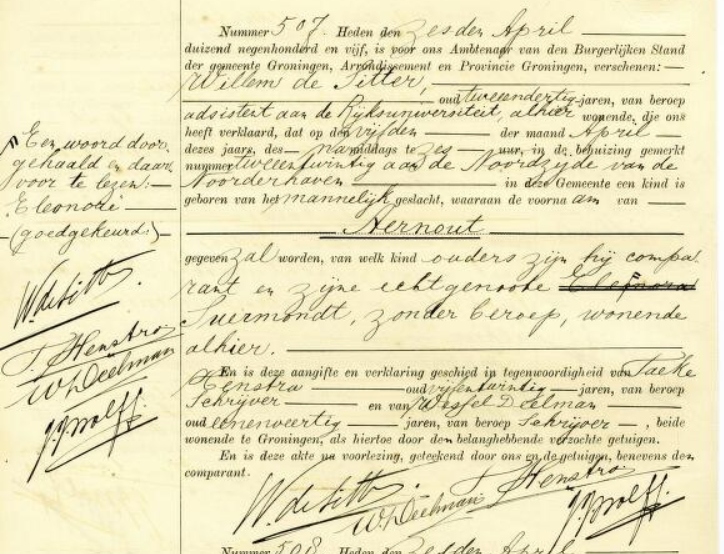 Nummer 507. Heden den zesden April
duizend negenhonderd en vijf, is voor ons Ambtenaar van den Burgerlijken Stand
der gemeente Groningen, Arrondissement en Provincie Groningen, verschenen:
Willem de Sitter,
oud tweeendertig jaren, van beroep
adsistent aan de Rijksuniversiteit, alhier wonende, die ons
heeft verklaard, dat op den vijfden der maand April
dezes jaars, des namiddags te zes uur, in de behuizing gemerkt
nummer tweeentwintig aan de Noordzijde van de
Noorderhaven in deze Gemeente een kind is
geboren van het mannelijk geslacht, waaraan de voornaam van
Aernout
gegeven zal worden, van welk kind ouders zijn hij compa-
rant en zijne echtgenoote Eleonora
Suermondt, zonder beroep, wonende
alhier.
En is deze aangifte en verklaring geschied in tegenwoordigheid van Taeke
Henstra oud vijfentwintig jaren, van beroep
Schrijver en van Wessel Doelman
oud eenenveertig jaren, van beroep Schrijver, beide
wonende te Groningen, als hiertoe door den belanghebbende verzochte getuigen.
En is deze akte na voorlezing, geteekend door ons en de getuigen, benevens den
comparant.
W. de Sitter
T. Henstra
J. J. Wolff.
Nummer 508. Heden den zesden April
Een woord door-
gehaald en daar
voor te lezen:
(goedgekeurd)
W. de Sitter.
T. Henstra
J. J. Wolff.